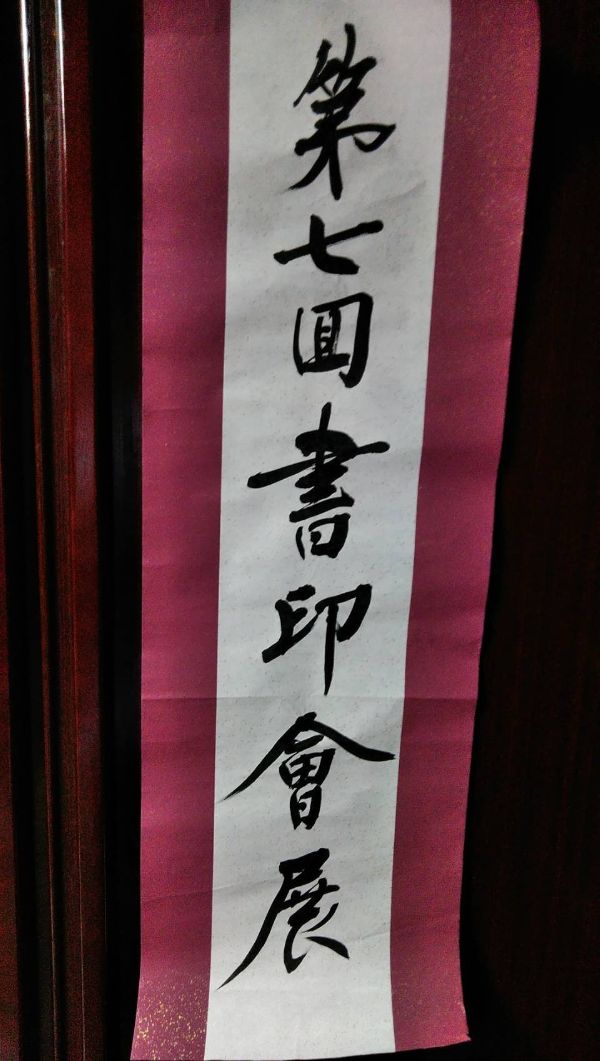 第七囬書印會展